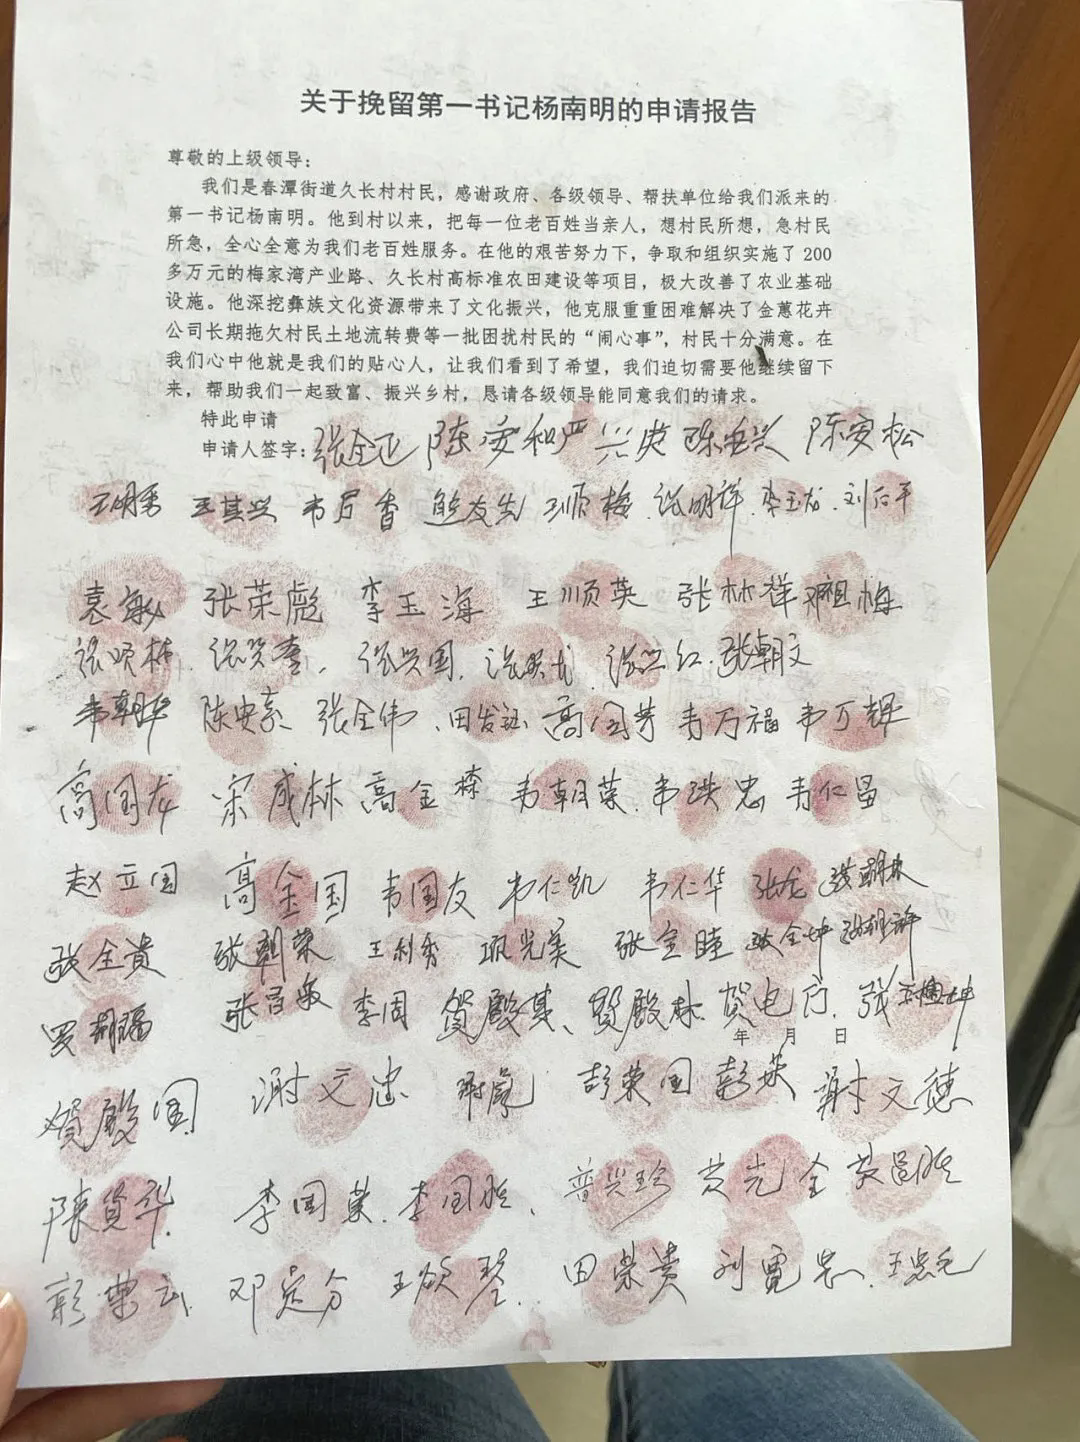 关于挽留第一书记杨南明的申请报告
尊敬的上级领导：
我们是春潭街道久长村村民，感谢政府、各级领导、帮扶单位给我们派来的
第一书记杨南明。他到村以来，把每一位老百姓当亲人，想村民所想，急村民
所急，全心全意为我们老百姓服务。在他的艰苦努力下，争取和组织实施了 200
多万元的梅家湾产业路、久长村高标准农田建设等项目，极大改善了农业基础
设施。他深挖彝族文化资源带来了文化振兴，他克服重重困难解决了金蕙花卉
公司长期拖欠村民土地流转费等一批困扰村民的“闹心事”，村民十分满意。在
我们心中他就是我们的贴心人，让我们看到了希望，我们迫切需要他继续留下
来，帮助我们一起致富、振兴乡村，恳请各级领导能同意我们的请求。
特此申请
申请人签字：张全正 陈安和 严兴英 陈安松
王其兴 韦万香 熊友先 王顺梅 张明祥 李玉龙
袁敏 张荣彪 李玉海 王顺英 张林祥 邓祖梅
张兴国 张兴红 张朝文
韦朝华 张全伟 高国芳 韦万福 韦万辉
高国龙 宋成林 高金栋 韦朝荣 韦洪忠 韦仁昌
赵立国 高金国 韦国友 韦仁凯 韦仁华 张龙
张全贵 张朝荣 王利秀 巩光美 张全睦 张全坤
张昌敏 李周 贺殿其 贺殿林
年 月 日
贺殿国 谢文忠 彭荣国 彭英 谢文德
陈贤华 李国荣 李国胜 普兴珍 黄光全
彭荣云 邓定分 王领琴 田荣贵 刘宽忠